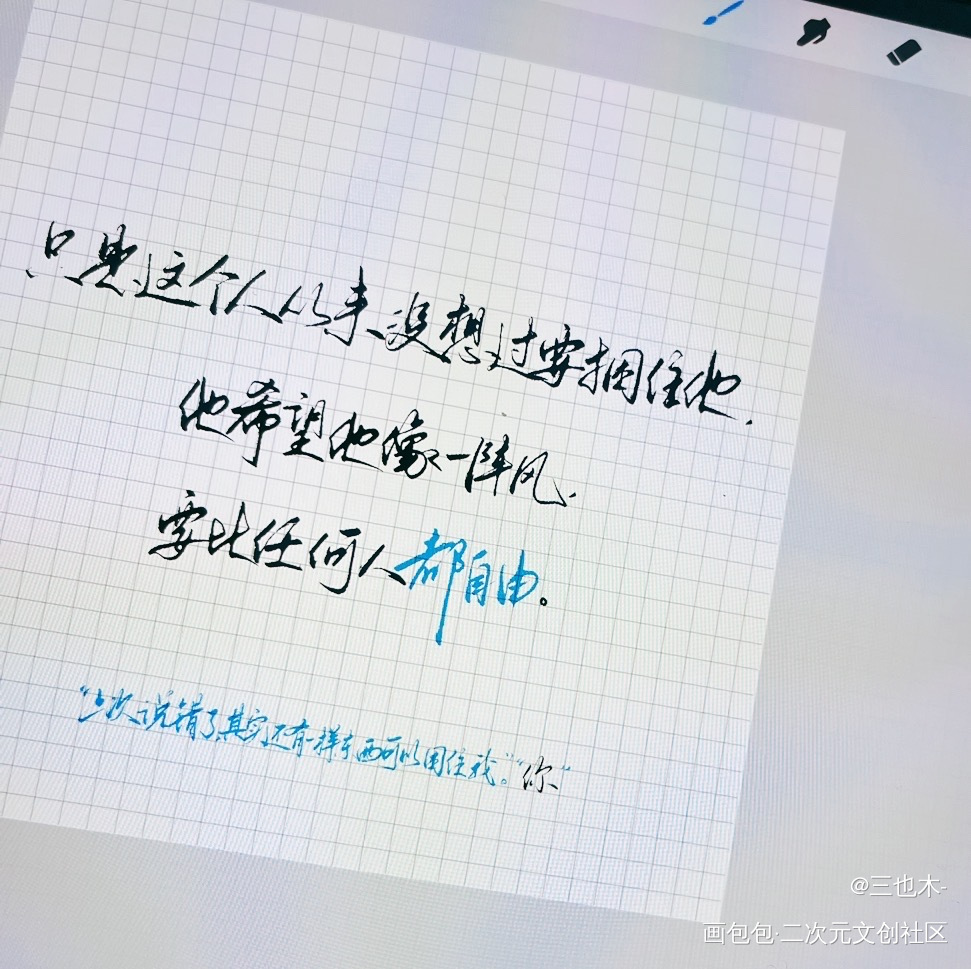 只是这个人从来没想过要捆住他.
他希望他像一阵风.
要比任何人都自由。
“上次说错了，其实还有一样东西可以困住我。”“你”
@三也木-
画包包·二次元文创社区